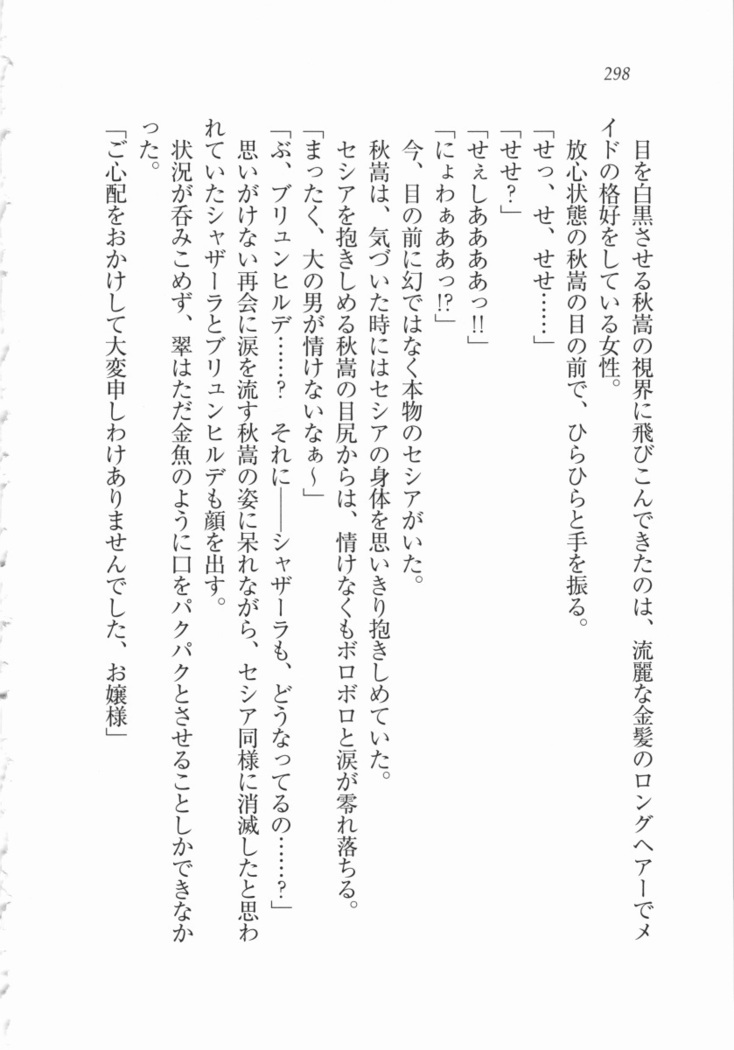 298
目を白黒させる秋嵩の視界に飛びこんできたのは、流麗な金髪のロングヘアーでメ
イドの格好をしている女性。
放心状態の秋嵩の目の前で、ひらひらと手を振る。
「せっ、せ、せせ……」
「せせ？」
「せぇしああああっ!!」
「にょわぁああっ!?」
今、目の前に幻ではなく本物のセシアがいた。
秋嵩は、気づいた時にはセシアの身体を思いきり抱きしめていた。
セシアを抱きしめる秋嵩の目尻からは、情けなくもボロボロと涙が零れ落ちる。
「まったく、大の男が情けないなぁ～」
「ぶ、ブリュンヒルデ……？　それに――シャザーラも、どうなってるの……？」
思いがけない再会に涙を流す秋嵩の姿に呆れながら、セシア同様に消滅したと思わ
れていたシャザーラとブリュンヒルデも顔を出す。
状況が呑みこめず、翠はただ金魚のように口をパクパクとさせることしかできなか
った。
「ご心配をおかけして大変申しわけありませんでした、お嬢様」